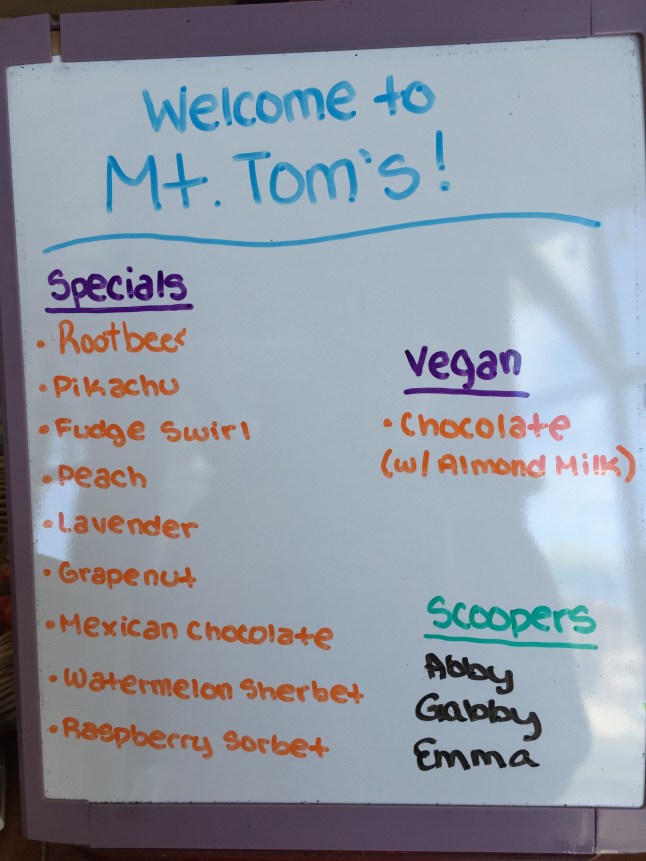 Welcome to
Mt. Tom's!
Specials
• Rootbeer
• Pikachu
• Fudge Swirl
• Peach
• Lavender
• Grapenut
• Mexican Chocolate
• Watermelon Sherbet
• Raspberry Sorbet
Vegan
• Chocolate
(w/ Almond Milk)
Scoopers
Abby
Gabby
Emma